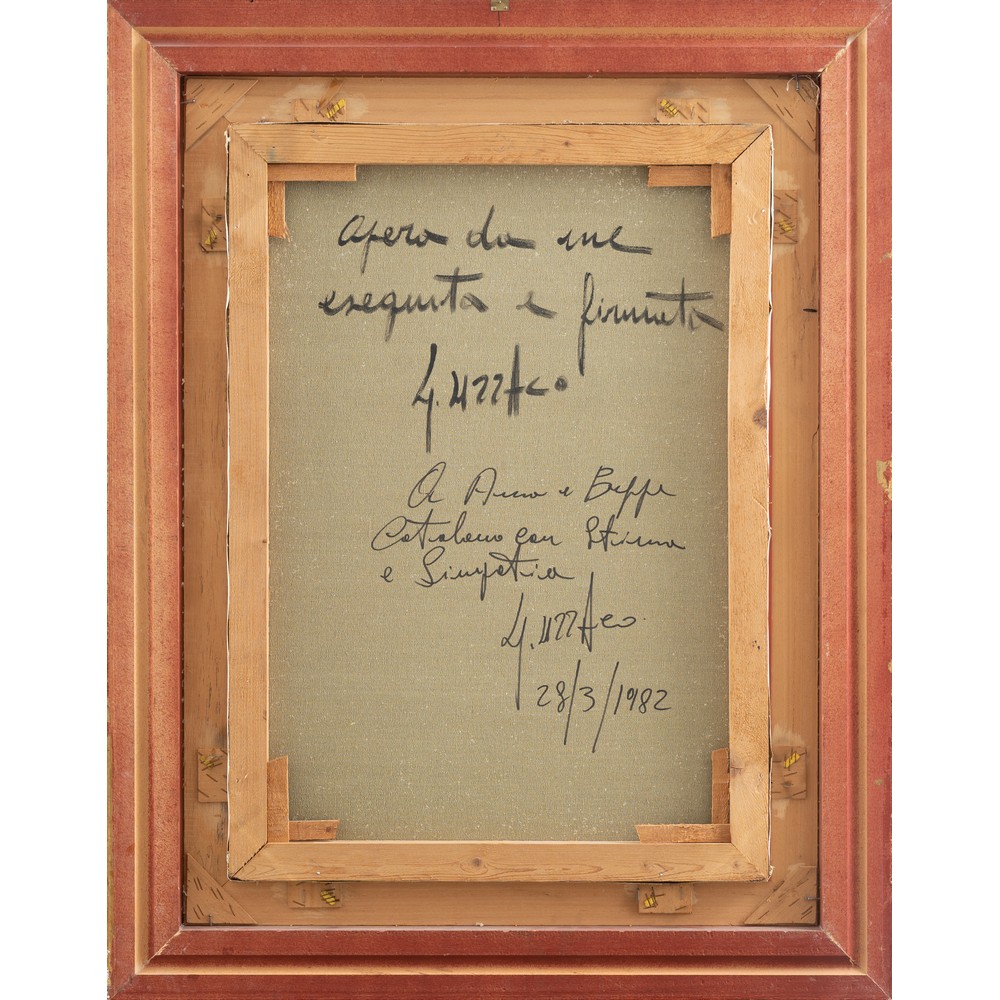 opera da me
eseguita e firmata
G. Uzzaco
A Anna e Beppe
Catalano con Stima
e Simpatia
G. Uzzaco
28/3/1982